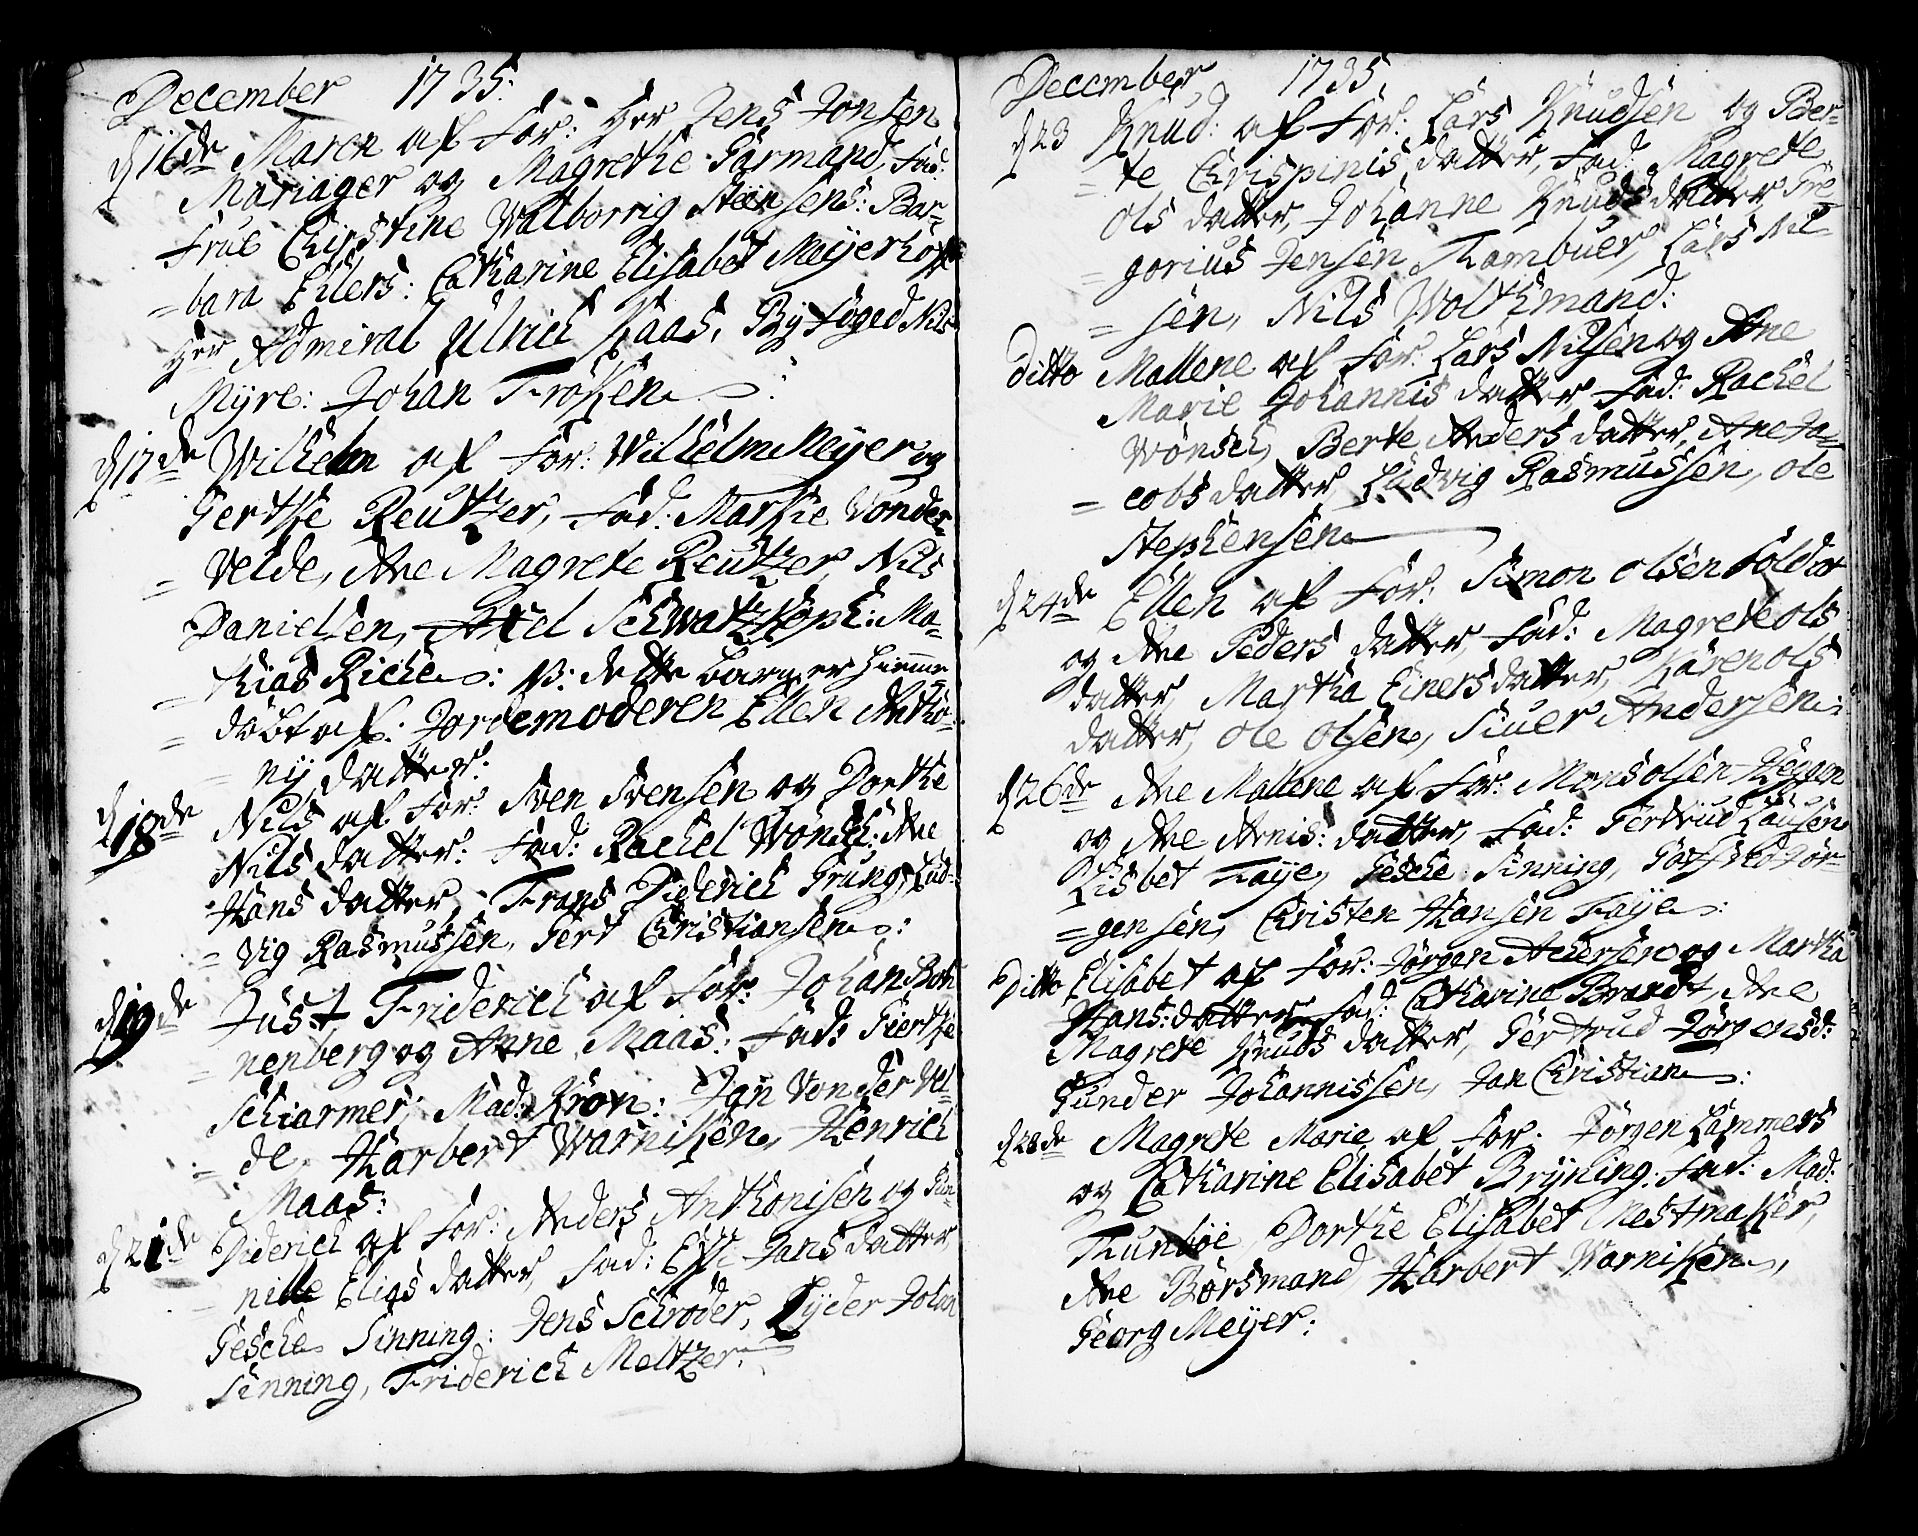 December 1735:
d 16de Maren af For: Her Jens Jonsen
Mariager og Magrethe Garmand, Fad:
Frue Chirstine Walborrig Steensens: Bar-
= bara Eilers: Catharine Elisabet Meyerhoff
Her Admiral Ulrich Kaas, By Foged Nils
Myre: Johan Frøken:
d 17de Wilhelm af For: Wilhelm Meyer og
Gerthe Reutzer, Fad: Marthe Vonder
= Velde, Ane Magrete Reutzer, Nils
Danielsen, Axel Schwatzkoph: Ma-
= thias Riche: N: dette barn er hiemme
= døbt af: Jordemoderen Ellen Antho-
= nij datter:
d 18de Nils af For: Sven Svensen og Dorthe
Nils datter: Fad: Rachel Wønsch: Ane
Hans datter, Frans Diderich Grung, Lud-
= vig Rasmussen, Gert Christiansen:
d 19de Just Friderich af For: Johan Bon
= nenberg og Anne Maas: Fad: Gierthe
Schiarmer, Mad: Kron: Jan Vonder Vel
= de, Harbert Warniken, Henrich
Maas:
d 21de Diderich af For: Anders Anthonisen og Gun
= nille Elias datter, Fad: Jans datter
Gesche Sinning: Jens Schrøder, Lyder Johan
Sinning, Friderich Meltzer:
December 1735
d 23 Knud: af For: Lars Knudsen og Ber-
= te Chrispinis datter, Fad: Magrete
Ols datter, Johanne Knuds datter, Gre-
= gorius Jensen Thambuer, Lars Nil-
= sen, Nils Woltimand:
ditto Mallene af For: Lars Nilsen og Ane
Marie Johannis datter, Fad: Rachel
Wønsch, Berte Anders datter, Ane Ja-
= cobs datter, Ludvig Rasmussen, Ole
Stephensen
d 24de Ellen af For: Simon Olsen Soldat
og Ane Peders datter, Fad: Magrete Ols
datter, Martha Einers datter, Karen Ols
datter, Ole Olsen, Siuer Andersen:
d 26de Ane Mallene af For: Mons Olsen Heggen
og Ane Arnis: datter, Fad: Gertrud Lausen
Lisbet Faye, Gesche Sinning, Gotfried Jør-
= gensen, Christen Hansen Faye:
Ditto Elisabet af For: Jørgen Andersen og Martha
Hans: datter Fad: Catharine Brandt, Ane
Magrete Knuds datter, Gertrud Jørgensd:
Gunder Johannissen, Jan Christian:
d 28de Magrete Marie af For: Jørgen Lammers
og Catharine Elisabet Bryning. Fad: Mad:
Thunbøe, Dorthe Elisabet Mestmaker,
Ane Børsmand, Harbert Warniken,
Georg Meyer: